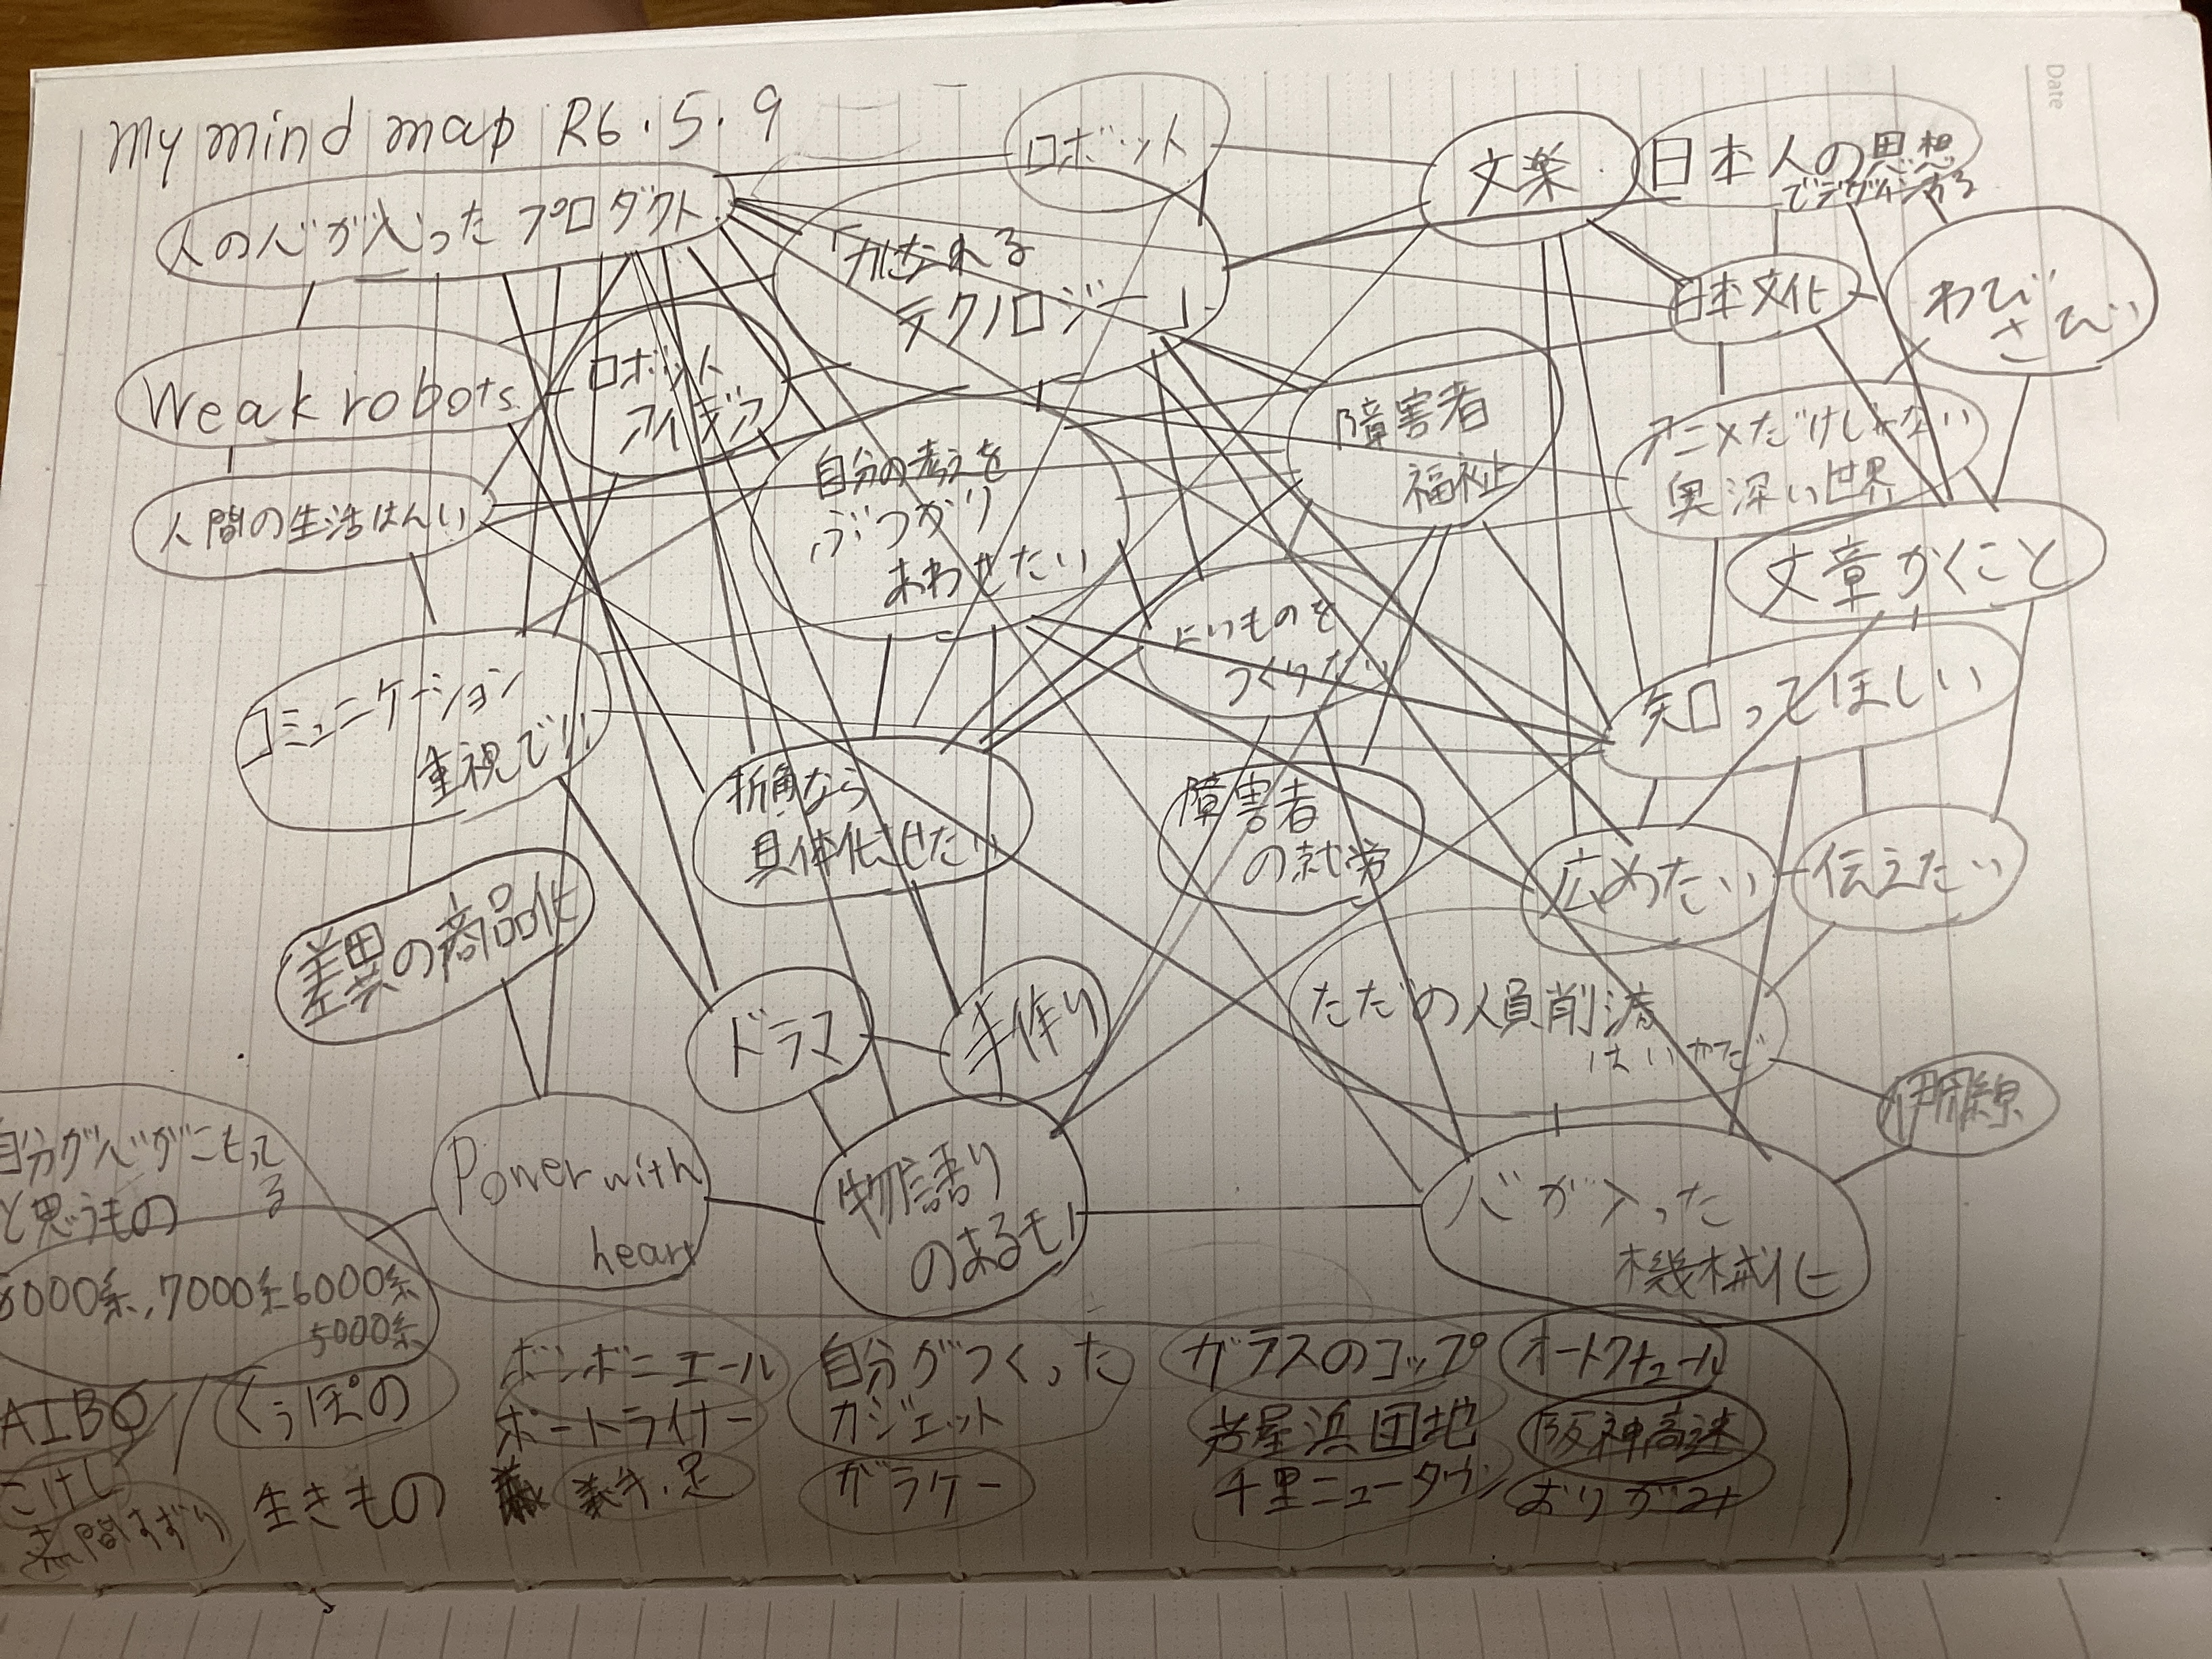 My mind map R6.5.9
Date
ロボット
文楽
日本人の思想
でデザインする
人の心が入ったプロダクト
テクノロジー」
日本文化
わび
さび
Weak robots
ロボット
アイデア
障害者
福祉
アニメだけじゃない
奥深い世界
人間の生活はんい
自分の考えを
ぶつかり
あわせたい
文章かくこと
よいものを
つくりたい
コミュニケーション
重視で!!
知ってほしい
折角なら
具体化させたい
障害者
の就労
広めたい
伝えたい
差異の商品化
ドラマ
手作り
ただの人員削減
はいやだ
自分が心がこもって
る
と思うもの
Power with
heart
物語り
のあるモノ
心が入った
機械化
000系,7000系6000系
5000系
AIBO
くぅぽの
ボンボニエール
ポートライナー
自分がつくった
ガジェット
ガラスのコップ
芦屋浜団地
オートクチュール
阪神高速
こけし
生きもの
義手・足
ガラケー
千里ニュータウン
おりがみ